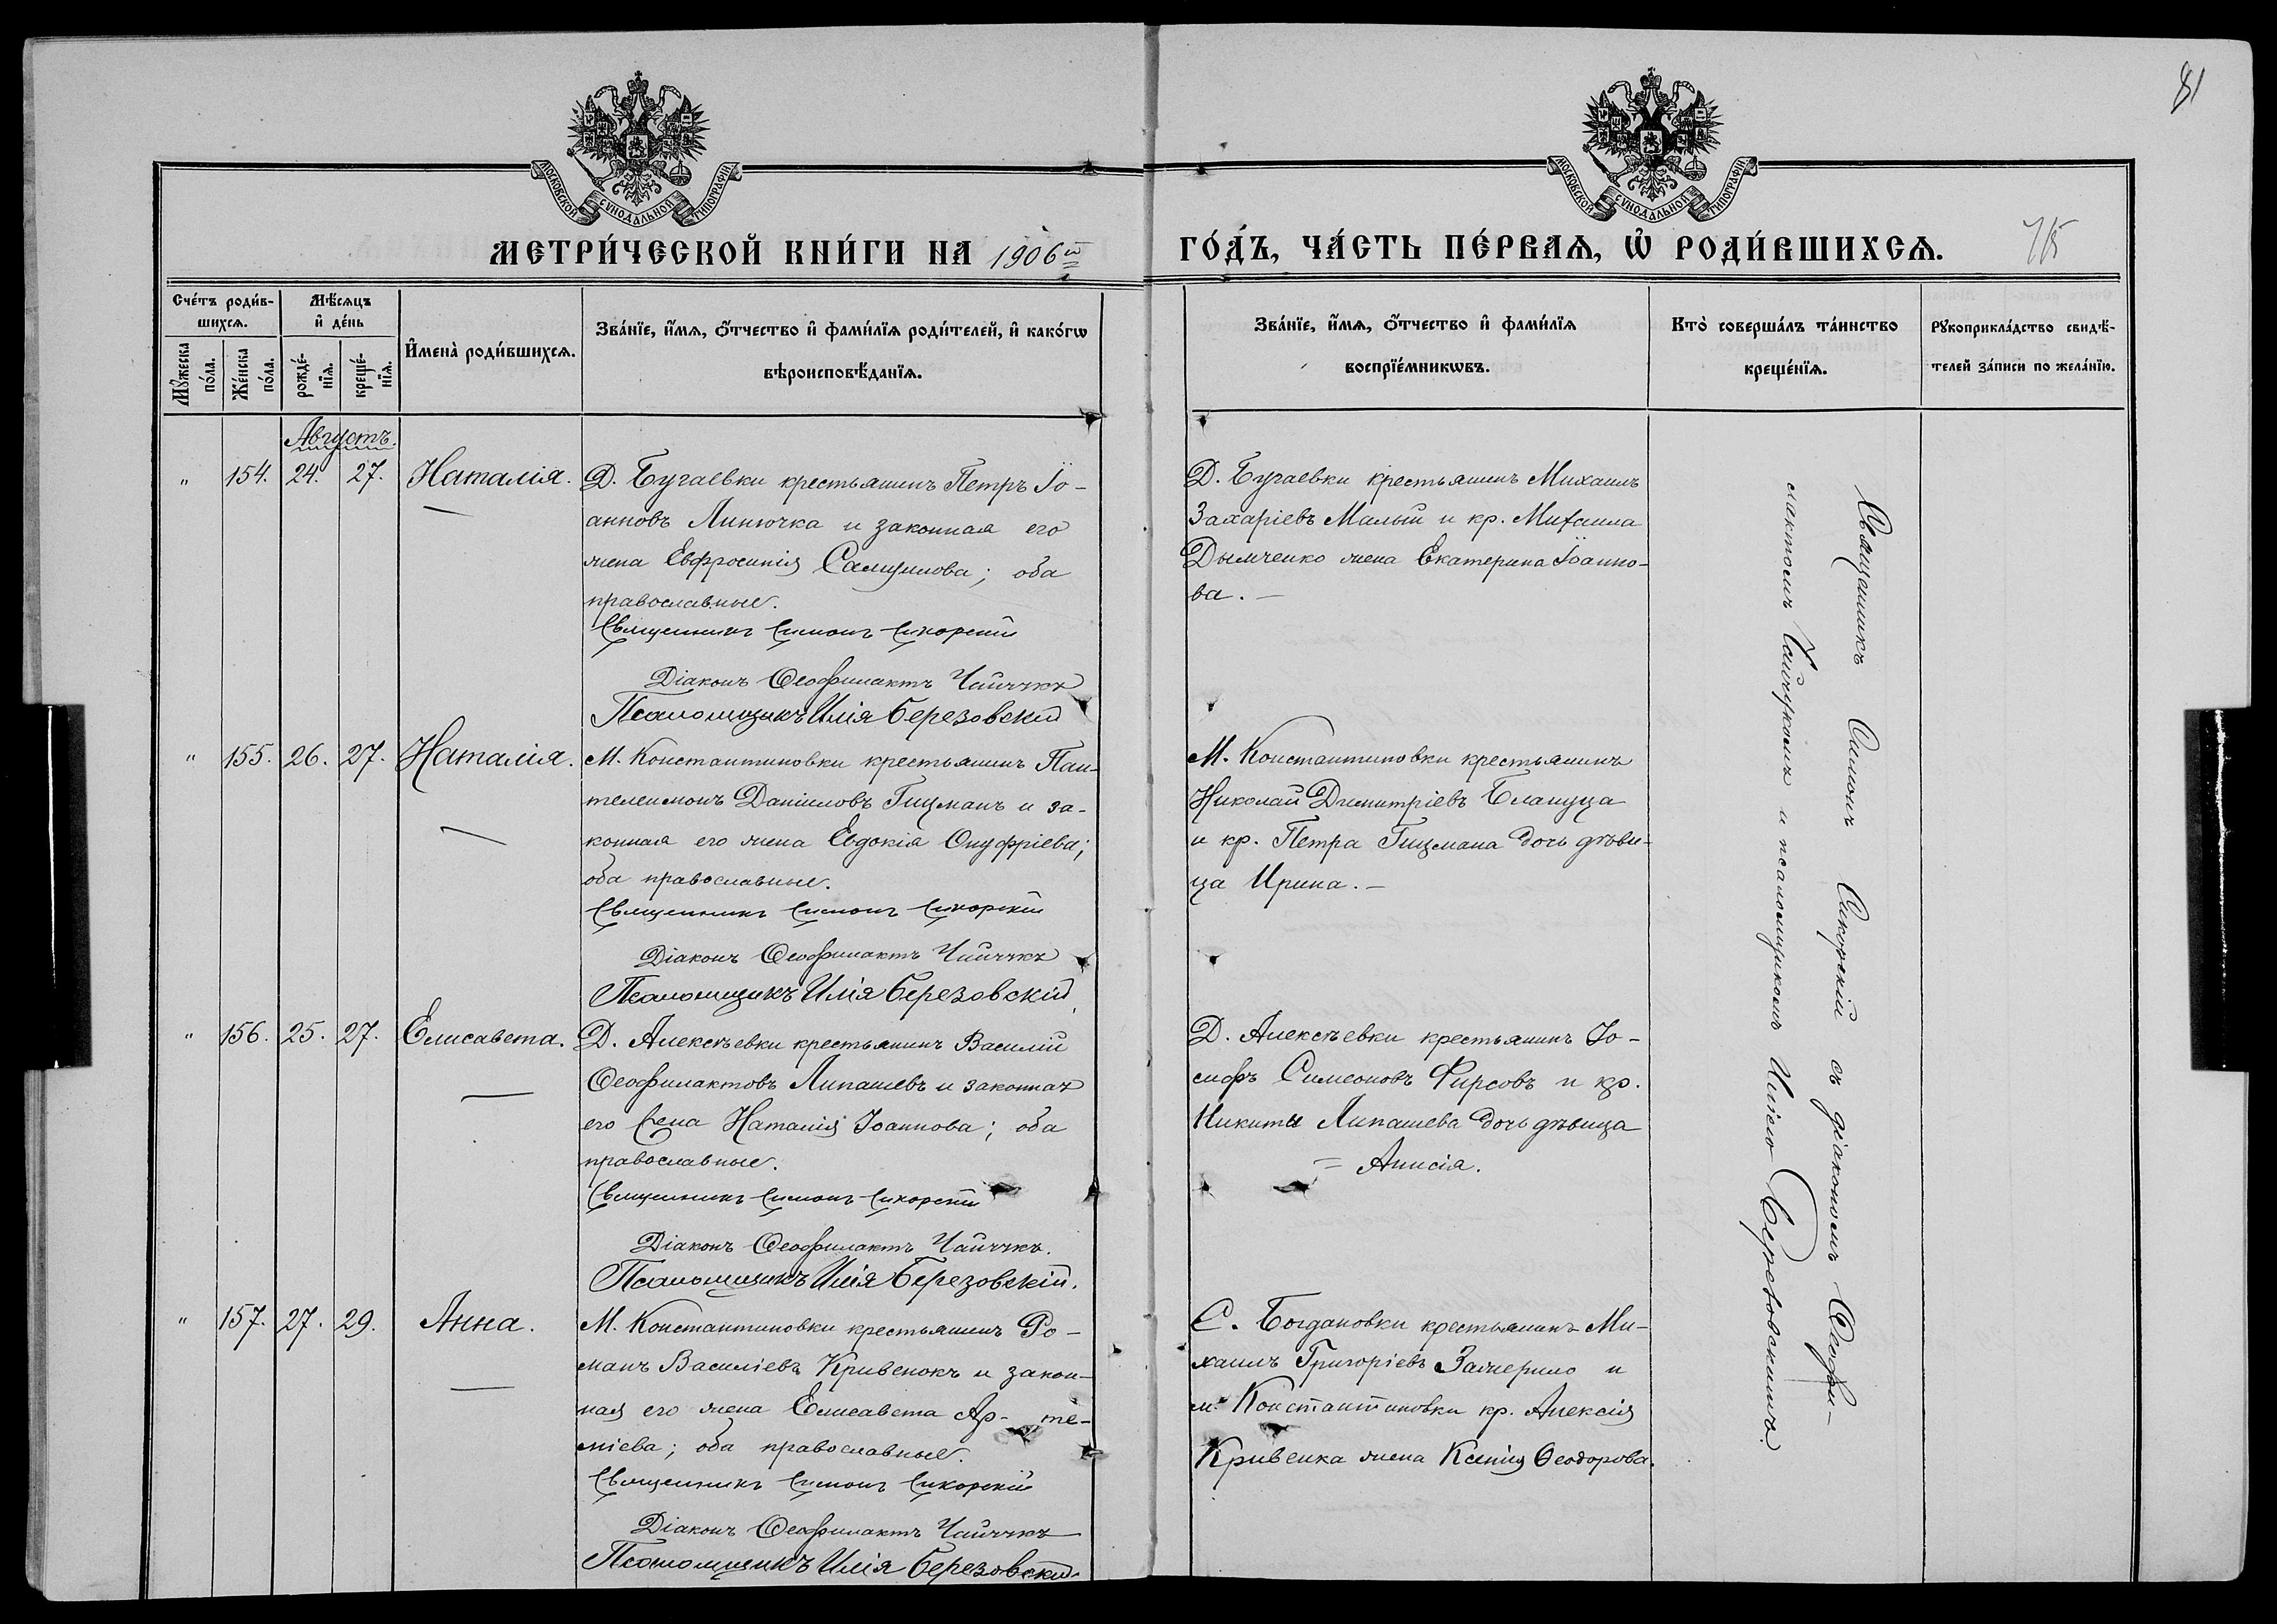 81
МОСКОВСКОЙ СѴНОДАЛЬНОЙ ТИПОГРАФІИ
МОСКОВСКОЙ СѴНОДАЛЬНОЙ ТИПОГРАФІИ
МЕТРИ́ЧЕСКОЙ КНИ́ГИ НА 1906й
ГО́ДЪ, ЧА́СТЬ ПЕ́РВАѦ, Ѡ҆ РОДИ́ВШИХСѦ.
75
Сче́тъ роди́в-
шихсѧ.
Мѣ́сѧцъ
и҆ де́нь
Мꙋ́жеска
по́ла.
Же́нска
по́ла.
рожде́-
нїѧ.
креще́-
нїѧ.
И҆мена̀ роди́вшихсѧ.
Зва́нїе, и҆́мѧ, ѻ҆́тчество и҆ фами́лїѧ роди́телей, и҆ како́гѡ
вѣроисповѣ́данїѧ.
Зва́нїе, и҆́мѧ, ѻ҆́тчество и҆ фами́лїѧ
воспрїе́мникѡвъ.
Кто̀ соверша́лъ та́инство
креще́нїѧ.
Рꙋкоприкла́дство свидѣ́-
телей за́писи по жела́нїю.
Августъ.
" 154. 24. 27. Наталія.
Д. Бугаевки крестьянинъ Петръ Іо-
анновъ Линючка и законная его
жена Евфросинія; оба
православные.
Священникъ Симонъ Сикорскій
Діаконъ Ѳеофилактъ Чайчукъ
Псаломщикъ Илія Березовскій
Д. Бугаевки крестьянинъ Михаилъ
Захаріевъ Малый и кр. Михаила
Дымченко жена Екатерина Іоанно-
ва. —
" 155. 26. 27. Наталія.
М. Константиновки крестьянинъ Пан-
телеимонъ Даніиловъ Гицманъ и за-
конная его жена Евдокія Онуфріева;
оба православные.
Священникъ Симонъ Сикорскій
Діаконъ Ѳеофилактъ Чайчукъ
Псаломщикъ Илія Березовскій
М. Константиновки крестьянинъ
Николай Димитріевъ Блануца
и кр. Петра Гицмана дочь дѣви-
ца Ирина. —
" 156. 25. 27. Елисавета.
Д. Алексѣевки крестьянинъ Василій
Ѳеофилактовъ Липашевъ и законная
его жена Наталія Іоаннова; оба
православные.
Священникъ Симонъ Сикорскій
Діаконъ Ѳеофилактъ Чайчукъ.
Псаломщикъ Илія Березовскій.
Д. Алексѣевки крестьянинъ Іо-
сифъ Симеоновъ Фирсовъ и кр.
Никиты Липашева дочь дѣвица
= Анисія.
" 157. 27. 29. Анна.
М. Константиновки крестьянинъ Ро-
манъ Василіевъ Кривенокъ и закон-
ная его жена Елисавета Ар- те-
міева; оба православные.
Священникъ Симонъ Сикорскій
Діаконъ Ѳеофилактъ Чайчукъ
Псаломщикъ Илія Березовскій
С. Богдановки крестьянинъ Ми-
хаилъ Григоріевъ Зажерило и
м. Константиновки кр. Алексія
Кривенка жена Ксенія Ѳеодорова.
Священникъ Симонъ Сикорскій съ діакономъ Ѳеофи-
лактомъ Чайчукомъ и псаломщикомъ Иліею Березовскимъ.